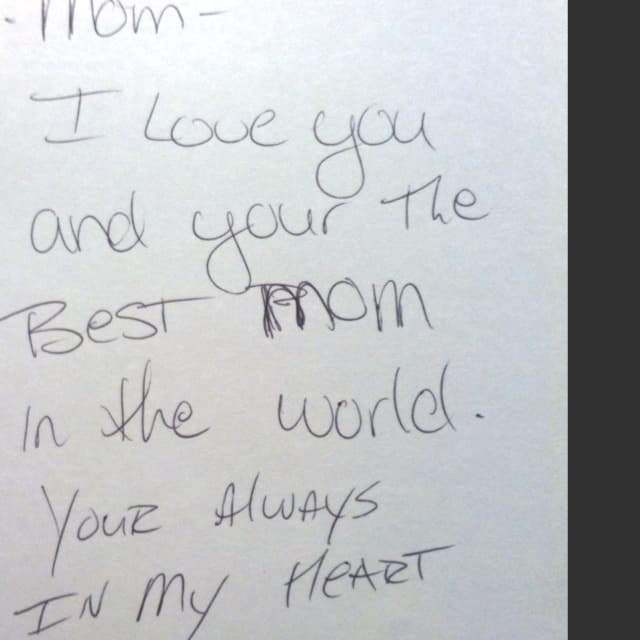 Mom-
I Love you
and your The
Best mom
in the world.
Your Always
In my Heart